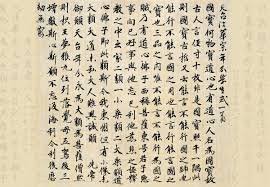 天台法華宗年分學生式一首
國寶何物寶道心也有道心人名為國寶
故古人言徑寸十枚非是國寶照千一隅
此則國寶古哲又云能言不能行國之師也
能行不能言國之用也能行能言國之
寶也三品之内唯不能言不能行為國之
賊乃有道心佛子西稱菩薩東號君子惡
事向己好事與他忘己利他慈悲之極釋
教之中出家二類一小乘類二大乘類道
心佛子即此斯類今我東州但有小像未
有大類大道未弘大人難興誠願 先帝
御願天台年分永為大類為菩薩僧然
則枳王夢猴九位列落覺母五駕後三
增數斯心斯願不忘汲海利今利後歷
劫無窮